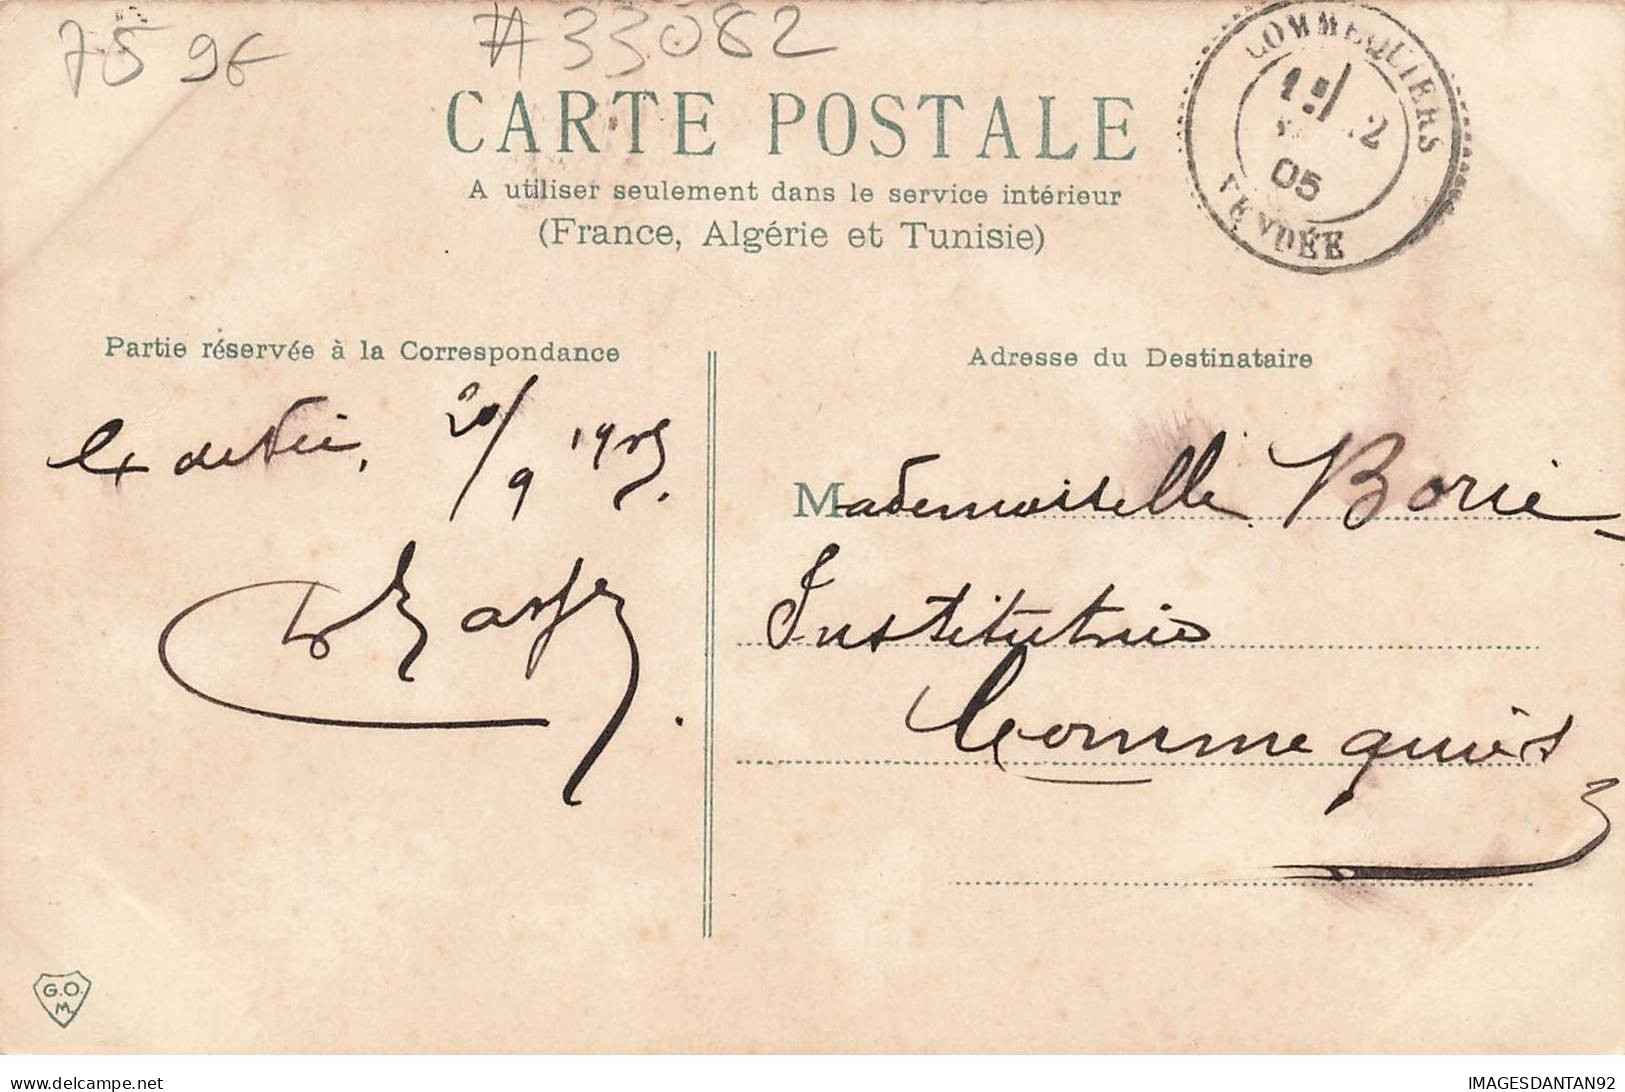 75 9E
#33082
CARTE POSTALE
A utiliser seulement dans le service intérieur
(France, Algérie et Tunisie)
COMMEQUIERS
05
VENDÉE
Partie réservée à la Correspondance
Adresse du Destinataire
20/9 1905.
Mademoiselle Borie
Institutrice
Commequiers
G.O.
M.
IMAGESDANTAN92
https://www.delcampe.net